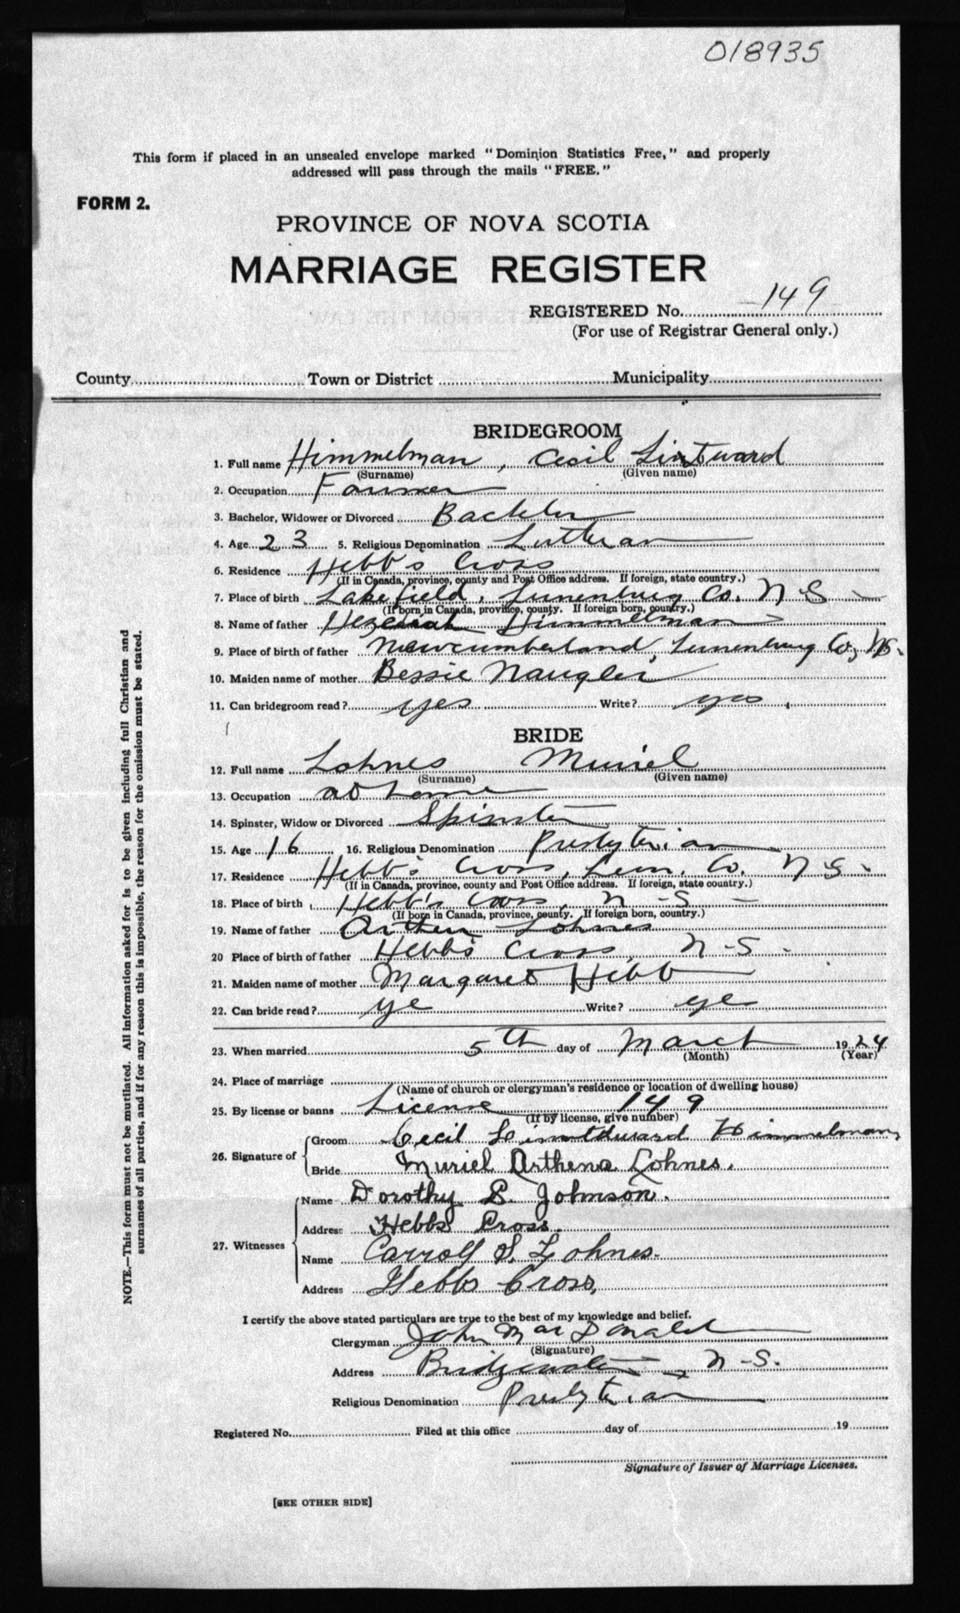 018935
This form if placed in an unsealed envelope marked "Dominion Statistics Free," and properly
addressed will pass through the mails "FREE."
FORM 2.
PROVINCE OF NOVA SCOTIA
MARRIAGE REGISTER
REGISTERED No. 149
(For use of Registrar General only.)
County Town or District Municipality
BRIDEGROOM
1. Full name Himmelman, Cecil
(Surname) (Given name)
2. Occupation Farmer
3. Bachelor, Widower or Divorced Bachelor
4. Age 23 5. Religious Denomination Lutheran
6. Residence Hebb's Cross
(If in Canada, province, county and Post Office address. If foreign, state country.)
7. Place of birth Lakefield, Lunenburg Co. N-S-
(If born in Canada, province, county. If foreign born, country.)
8. Name of father Himmelman
9. Place of birth of father Newcumberland, Lunenburg Co, NS.
10. Maiden name of mother Bessie Naugler
11. Can bridegroom read? yes Write? yes
BRIDE
12. Full name Lohnes Muriel
(Surname) (Given name)
13. Occupation at home
14. Spinster, Widow or Divorced Spinster
15. Age 16 16. Religious Denomination Presbyterian
17. Residence Hebb's Cross, Lun. Co. N-S-
(If in Canada, province, county and Post Office address. If foreign, state country.)
18. Place of birth Hebb's Cross, N-S-
(If born in Canada, province, county. If foreign born, country.)
19. Name of father Arthur Lohnes
20 Place of birth of father Hebb's Cross, N-S-
21. Maiden name of mother Margaret Hebb
22. Can bride read? ye Write? ye
23. When married 5th day of March 1924
(Month) (Year)
24. Place of marriage
(Name of church or clergyman's residence or location of dwelling house)
25. By license or banns License 149
(If by license, give number)
26. Signature of Groom Cecil Himmelman
Bride Muriel Arthena Lohnes.
27. Witnesses Name Dorothy S. Johnson.
Address Hebbs Cross.
Name Carroll S. Lohnes.
Address Hebbs Cross,
I certify the above stated particulars are true to the best of my knowledge and belief.
Clergyman John MacDonald
(Signature)
Address Bridgewater, N-S.
Religious Denomination Presbyterian
Registered No. Filed at this office day of 19
Signature of Issuer of Marriage Licenses.
[SEE OTHER SIDE]
NOTE.—This form must not be mutilated. All information asked for is to be given including full Christian and
surnames of all parties, and if for any reason this is impossible, the reason for the omission must be stated.